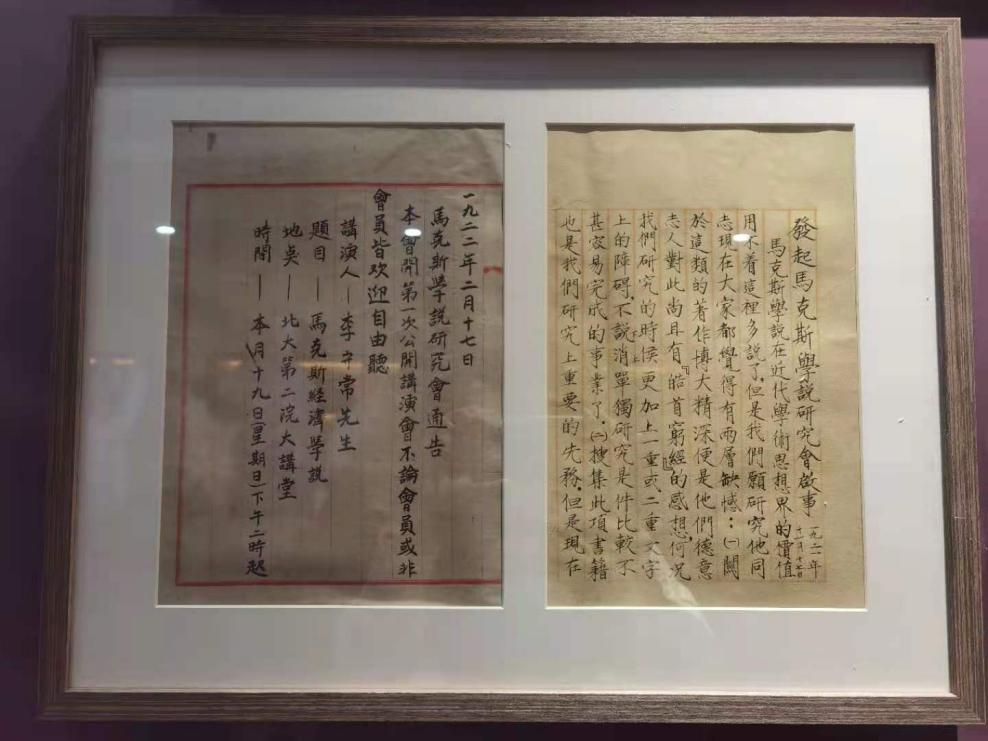 發起馬克斯學説研究會啟事
一九二一年
十一月十七日
馬克斯學説在近代學術思想界的價值
用不着這裡多説了，但是我們願研究他同
志現在大家都覺得有兩層缺憾：㈠關
於這類的著作博大精深便是他們德意
志人對此尚且有『皓首窮經』的感想，何况
我們研究的時侯更加上一重或二重文字
上的障碍，不説消單獨研究是件比較不
甚容易完成的事業了。㈡搜集此項書籍
也是我們研究上重要的先務，但是現在
一九二二年二月十七日
馬克斯學説研究會通告
本會開第一次公開講演會不論會員或非
會員皆欢迎自由聽
講演人—李守常先生
題目—馬克斯經濟學説
地奌—北大第二院大講堂
時間—本月十九日(星期日)下午二時起